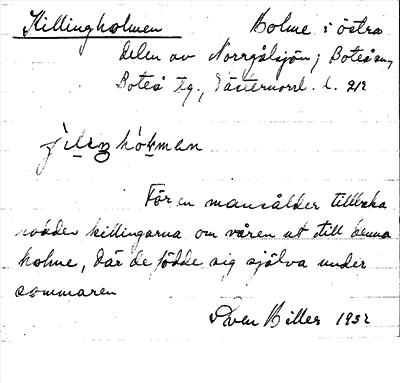 Killingholmen Holme i östra
delen av Norrgålsjön; Boteå sn,
Boteå tg., Västernorrl. l. 212
hókman
För en mansålder tillbaka
rodde killingarna om våren ut till denna
holme, där de födde sig själva under
sommaren
Sven Hiller 1932